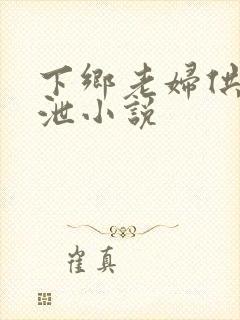 下鄉老婦供
泄小説
崔真